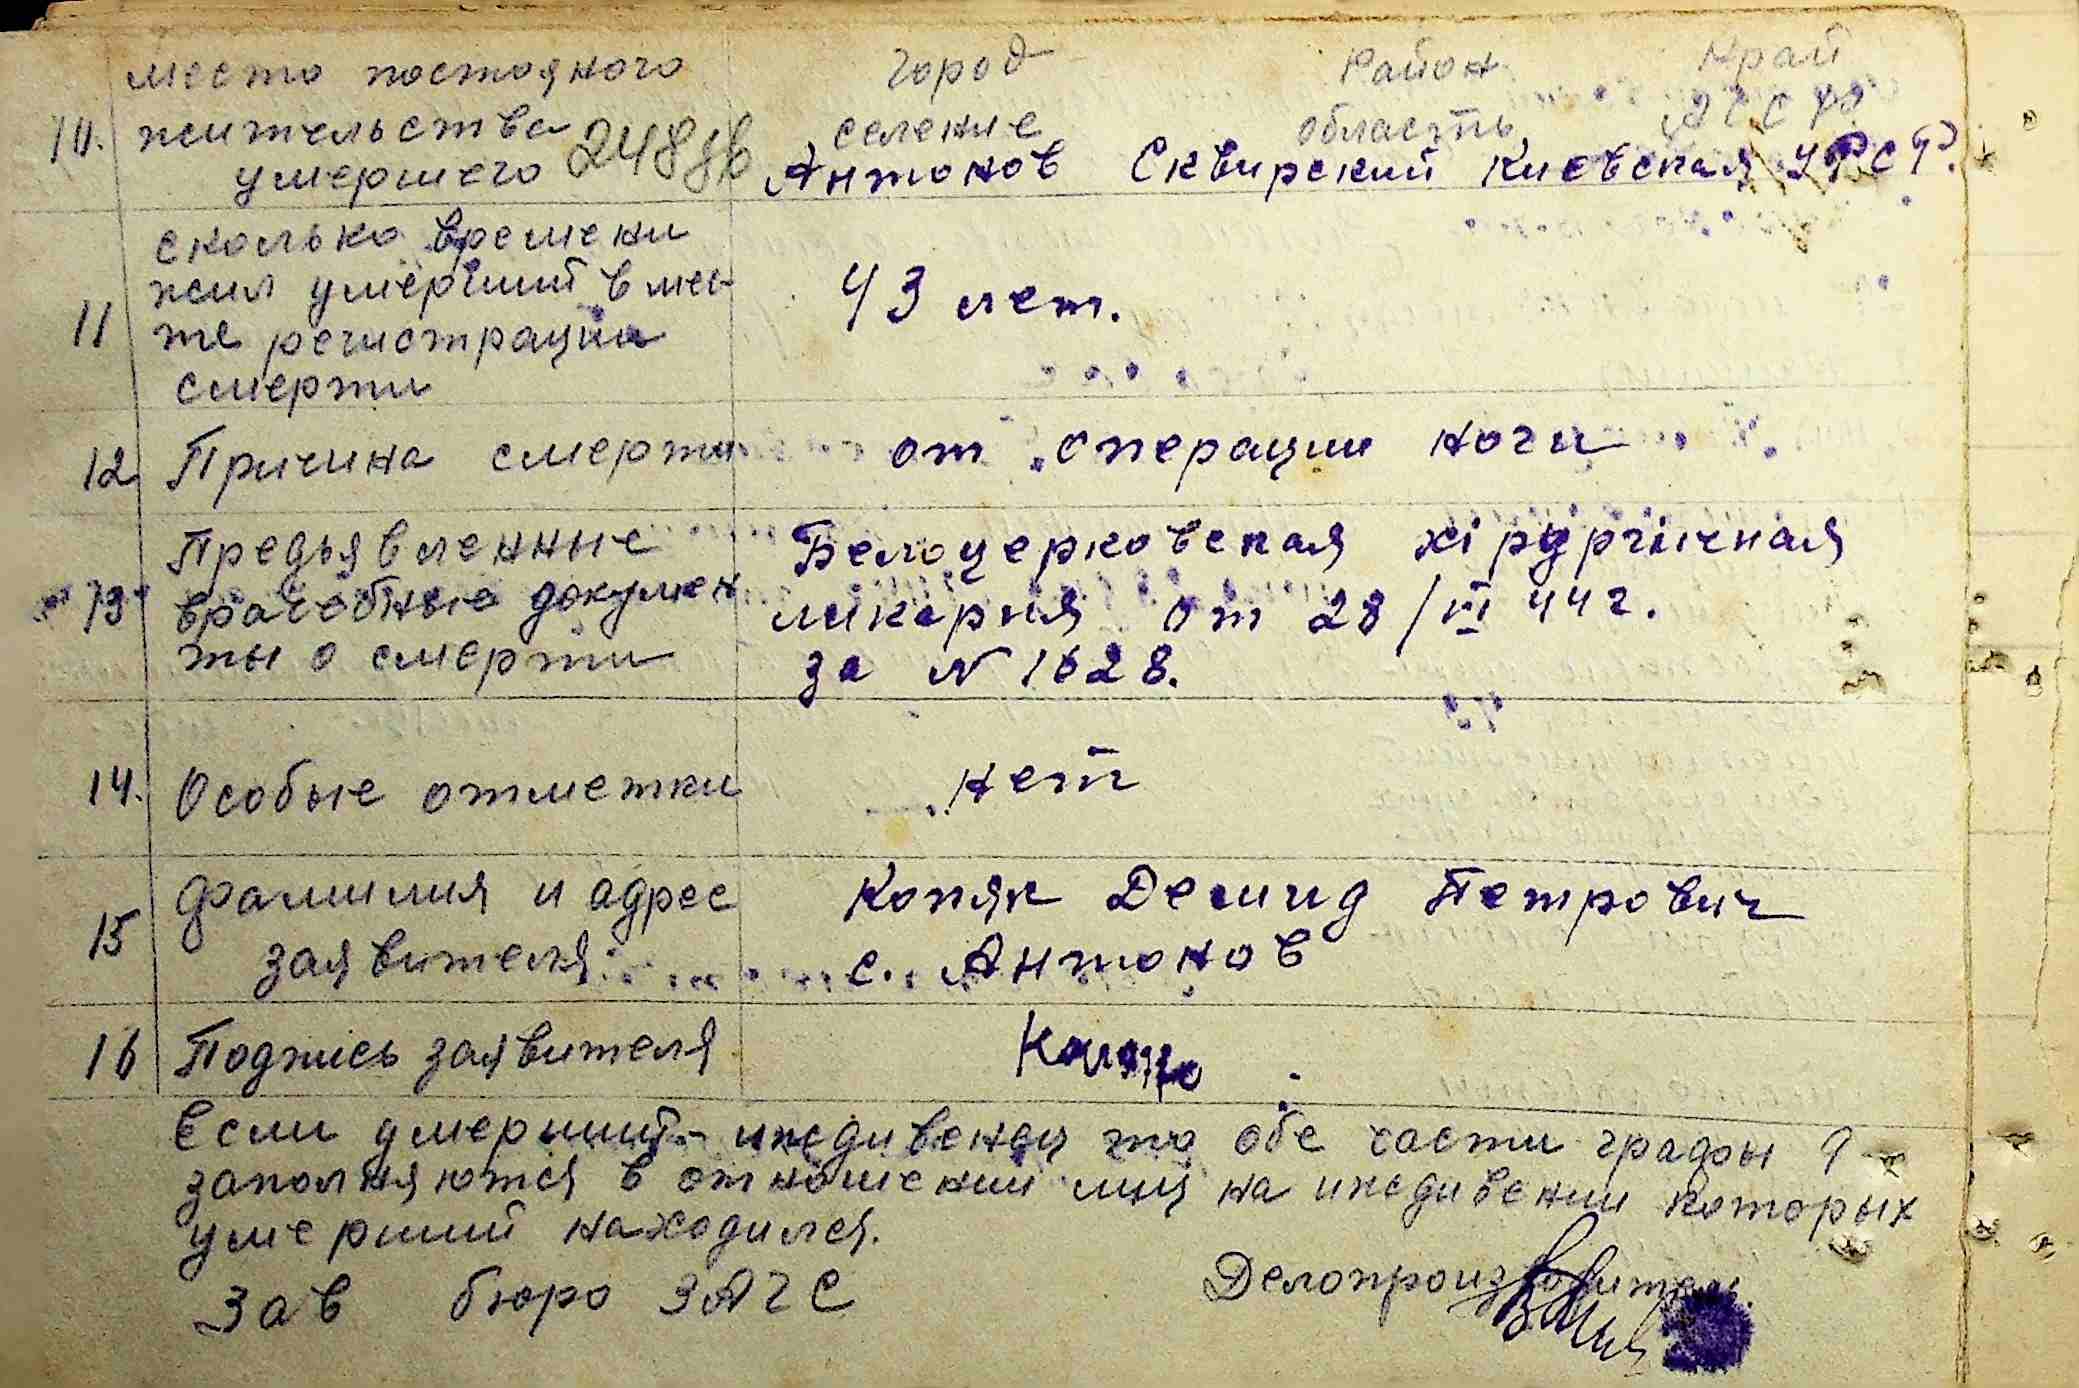 место постояного город Район Край
10. жительства селение область АССР
умершего 248 зв Антонов Сквирский Киевская УРСР.
сколько времени
жил умерший в мес-
11 те регистрации 43 лет.
смерти
12 Причина смерти от операции ноги
Предъявленные Белоцерковская хірургичная
13 врачебные докумен ликарня от 28/III 44 г.
ты о смерти за N 1628.
14. Особые отметки нет
Фамилия и адрес Копяк Демид Петрович
15 заявителя: с. Антонов
16 Подпись заявителя
Если умерший - иждивенец то обе части графы 9
заполняются в отношении лиц на иждивении которых
умерший находился.
Зав бюро ЗАГС Делопроизводитель.